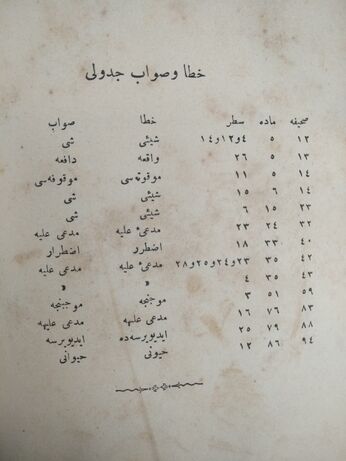 خطا وصواب جدولی
صحیفه ماده سطر خطا صواب
١٢ ٥ ٤و١٢و١٤ شیئی شی
١٣ ٥ ٢٦ واقعه دافعه
١٤ ٥ ١١ موقوته‌سی موقوفه‌سی
١٤ ٦ ١٥ شیئی شی
٢٣ ١٥ ٦ شیئی شی
٣٢ ٢٤ ٢٣ مدعیٔ علیه مدعی علیه
٤٠ ٣٣ ١٨ اضطرر اضطرار
٤٢ ٣٥ ٢٣و٢٤و٢٥و٢٨ مدعیٔ علیه مدعی علیه
٤٣ ٣٥ ٤ » »
٥٩ ٥١ ٣ موجنجه موجبنجه
٨٣ ٧٦ ١٦ مدعی علیهه مدعی علیهه
٨٨ ٧٩ ٢٥ ایدیوبرسه‌ده ایدیوبرسه
٩٤ ٨٦ ١٢ حیونی حیوانی